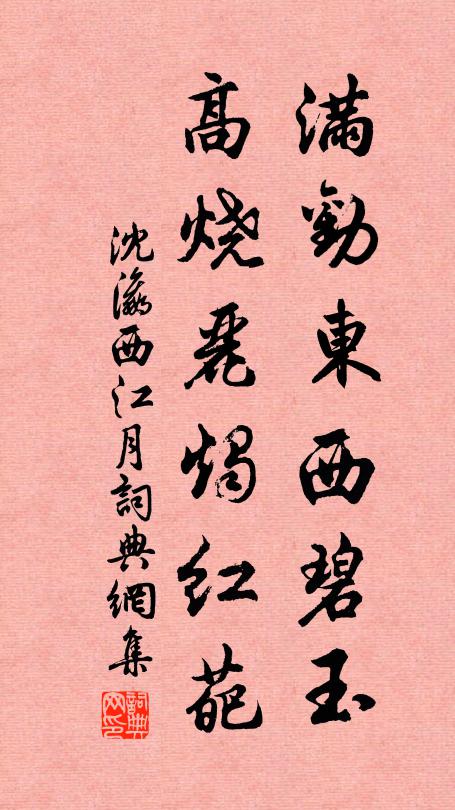 滿勸東西碧玉
高燒麗燭紅葩
沈瀛西江月詞典網集
詞典网印